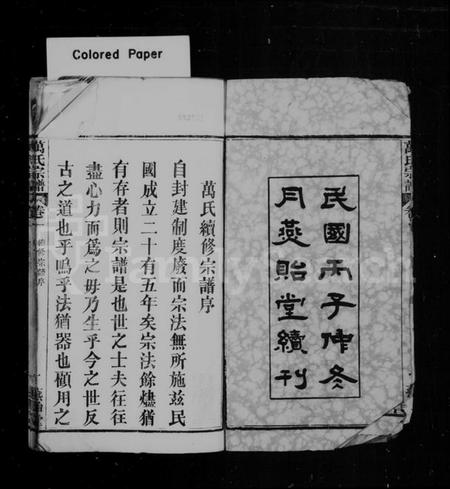 Colored Paper
民國丙子仲冬
月燕貽堂續刊
萬氏宗譜
萬氏續修宗譜序
自封建制度廢而宗法無所施茲民
國成立二十有五年矣宗法餘燼猶
有存者則宗譜是也世之士夫往往
盡心力而為之毋乃生乎今之世反
古之道也乎嗚乎法猶器也顧用之
萬氏宗譜
卷一
續修宗譜序
一